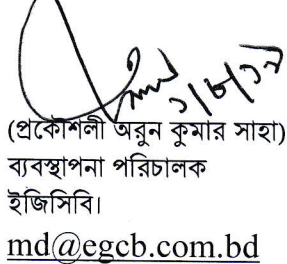 (প্রকৌশলী অরুন কুমার সাহা)
ব্যবস্থাপনা পরিচালক
ইজিসিবি।
md@egcb.com.bd